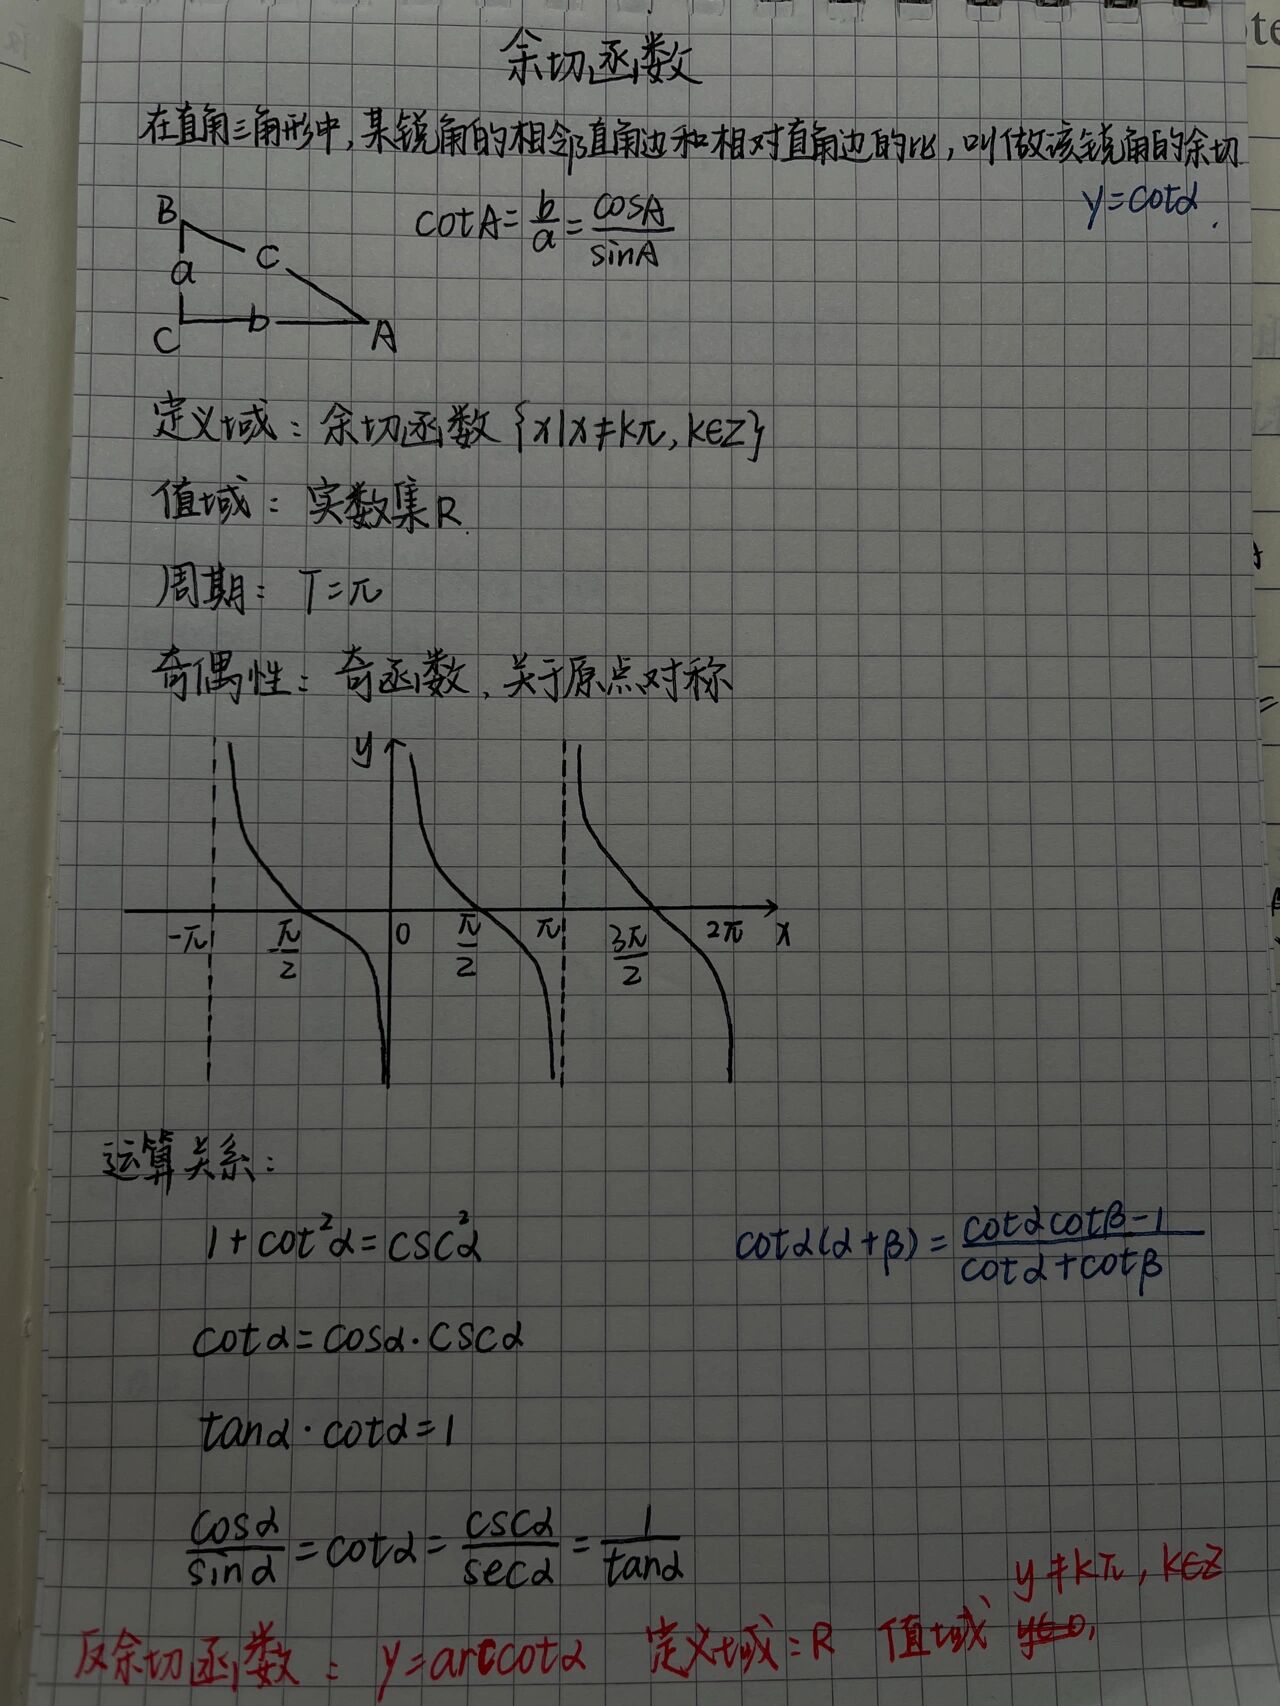 余切函数
在直角三角形中,某锐角的相邻直角边和相对直角边的比,叫做该锐角的余切
y=cotα.
cotA=b/a=cosA/sinA
B
a
c
C
b
A
定义域:余切函数{x|x≠kπ,k∈Z}
值域:实数集R.
周期:T=π
奇偶性:奇函数,关于原点对称
y
-π
-π/2
0
π/2
π
3π/2
2π
x
运算关系:
1+cot²α=csc²α
cotα(α+β)=cotαcotβ-1/cotα+cotβ
cotα=cosα·cscα
tanα·cotα=1
cosα/sinα=cotα=cscα/secα=1/tanα
y≠kπ,k∈Z
反余切函数:y=arccotα 定义域:R 值域